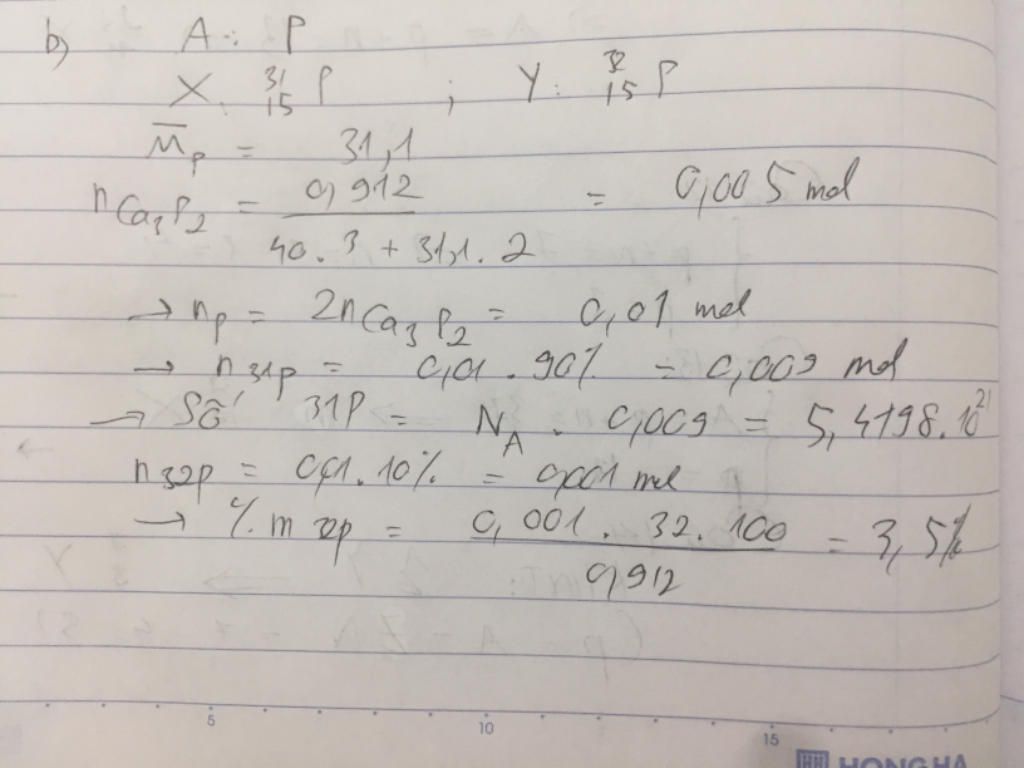 b) A : P
X : ³¹₁₅P ; Y : ³²₁₅P
M̅_P = 31,1
n_Ca₃P₂ = 0,912 / (40 . 3 + 31,1 . 2) = 0,005 mol
→ n_P = 2n_Ca₃P₂ = 0,01 mol
→ n_31P = 0,01 . 90% = 0,009 mol
→ Số 31P = N_A . 0,009 = 5,4198.10²¹
n_32P = 0,01.10% = 0,001 mol
→ % m 32P = (0,001 . 32. 100) / 0,912 = 3,5%
5 10 15
HONG HA